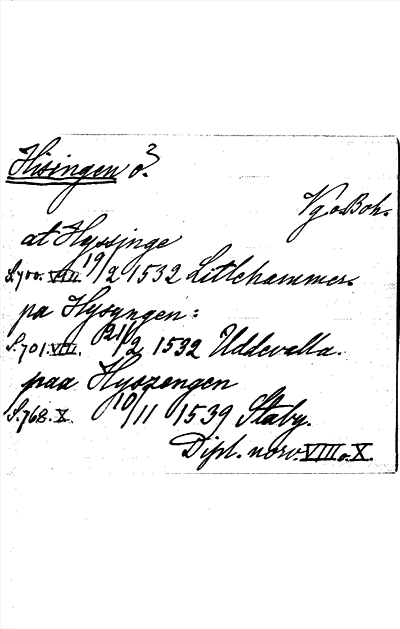 Hisingen ö.
Vg o Boh.
at Hyssjnge
S. 700. VIII 19/2 1532 Litlehammer.
pa Hysyngen:
S. 701. VIII. 21/2 1532 Uddevalla.
paa Hyszengen
S. 768. X. 10/11 1539 Staby.
Dipl. norv. VIII o. X.